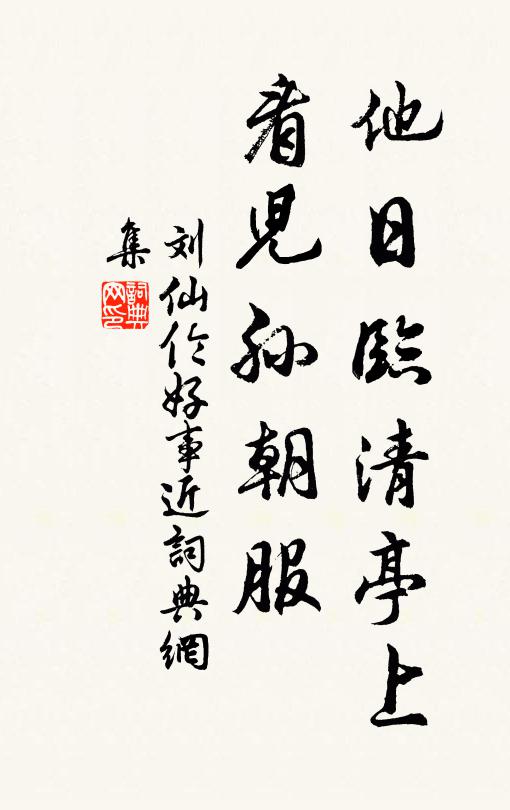 他日臨清亭上
看兒孙朝服
刘仙伦好事近詞典網
集
詞典
网印